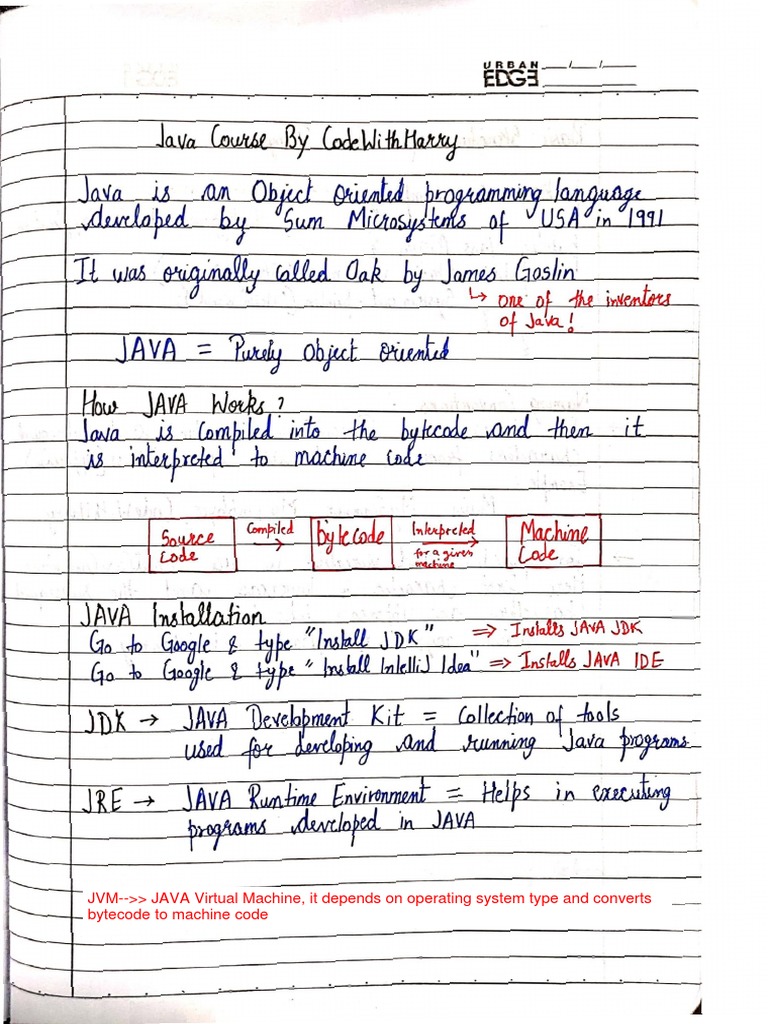 URBAN
EDGE
Java Course By CodeWithHarry
Java is an Object oriented programming language
developed by Sum Microsystems of USA in 1991
It was originally called Oak by James Goslin
↳ one of the inventors
of Java!
JAVA = Purely Object oriented
How JAVA Works?
Java is compiled into the bytecode and then it
is interpreted to machine code
Source Code → Compiled → bytecode → Interpreted for a given machine → Machine Code
JAVA Installation
Go to Google & type "Install JDK" ⇒ Installs JAVA JDK
Go to Google & type "Install IntelliJ Idea" ⇒ Installs JAVA IDE
JDK → JAVA Development Kit = Collection of tools
used for developing and running Java programs
JRE → JAVA Runtime Environment = Helps in executing
programs developed in JAVA
JVM-->> JAVA Virtual Machine, it depends on operating system type and converts
bytecode to machine code